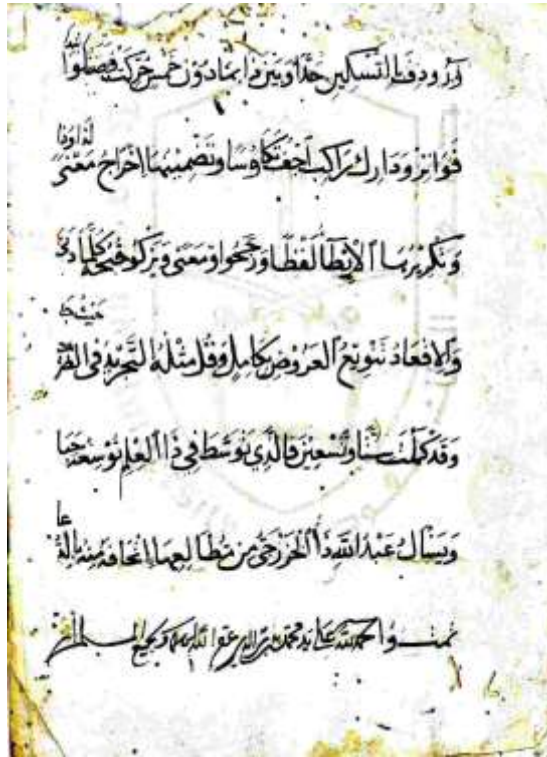 وَرُودِفَ بِالتَسْكِينِ حَدًّا وَبَيْنَ ذَا بِمَا دُونَ خَمْسٍ حُرِّكَتْ فَصَلُوا
فَوَاتِرْ وَدَارِكْ رَاكِب اجْفُ تَكَاوُسًا وتَضْمِينُهَا اِخْرَاجُ مَعْنىً لِذَا وَذَا
وَتَكْرِيْرُهَا الْاِيْطَاُ لَفْظًا وَرَجَّحُوا وَمَعْنىً وَيَزْكُو قُبْحُهُ كُلَّمَا دَنَى
وَالاِقْعَادُ تَنْوِيْعُ الْعَرُوْضِ بِكَامِلٍ وَقُلْ مِثْلُهُ التَّحْرِيْدُ فِى الضَّرْبِ حَيْثُ جَا
وَقَدْ كَمُلَتْ سِتًّا وَتِسْعِيْنَ فَالَّذِي تَوَسَّطَ فِي ذَا الْعِلْمِ تُوْسِعُهُ حِبَا
وَيَسْاَلُ عَبْدُ اللَّهِ ذَا الْخَزْرَجِىُّ مِنْ مُطَالِعِهَا اِتْحَافَهُ مِنْهُ بِالدُّعَا
تمت والحمد لله على يد محمد عفا الله